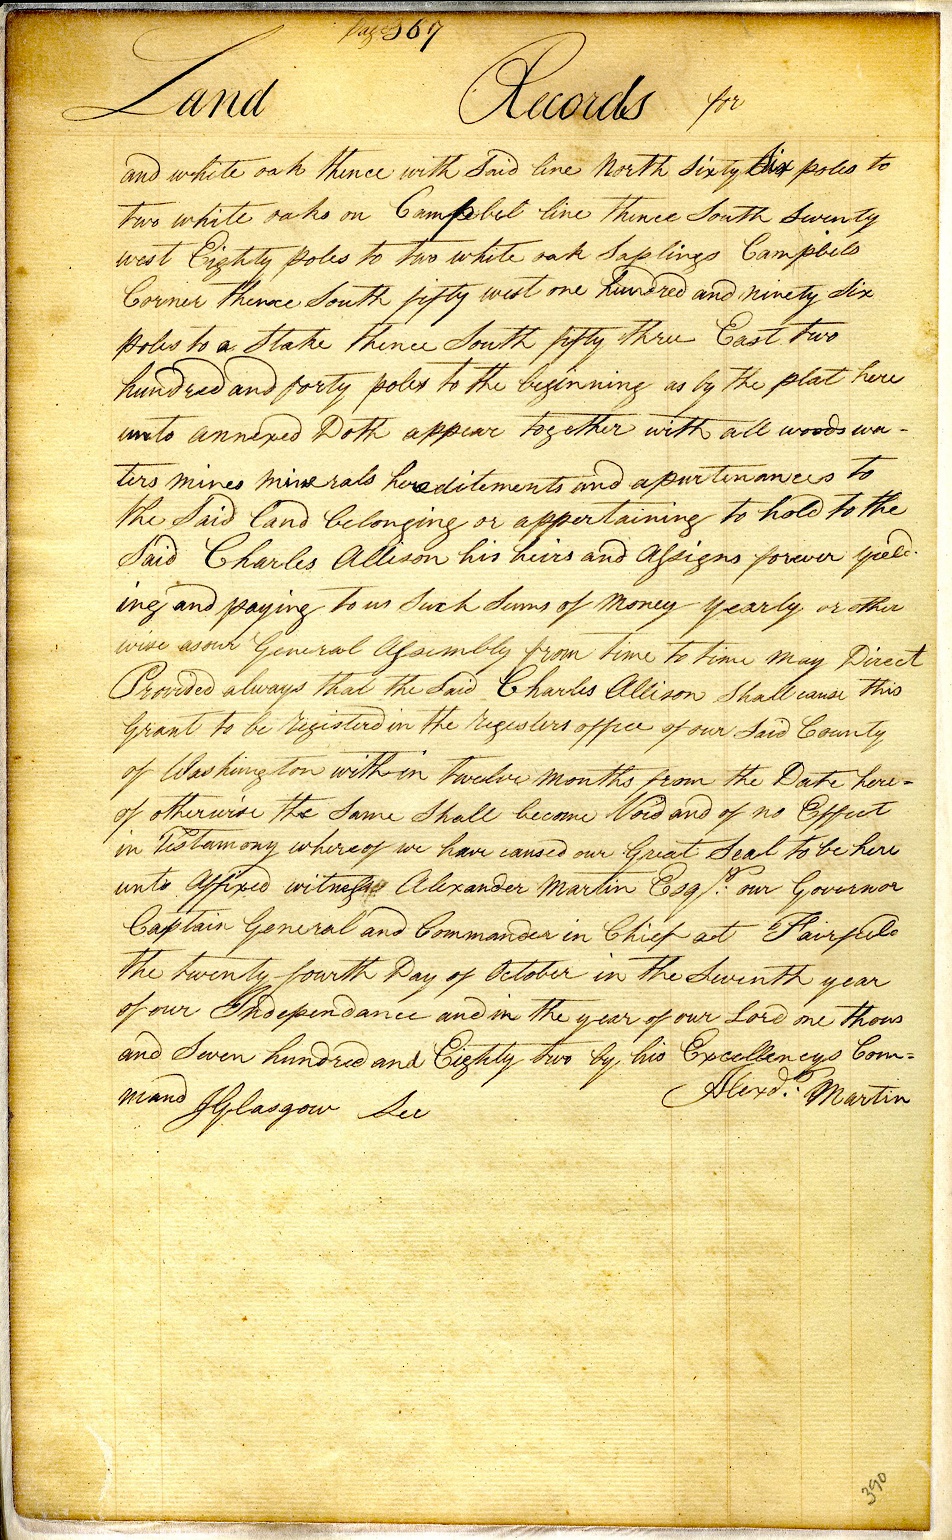 Page 367
Land Records for
and white oak thence with Said line North Sixty Six poles to
two white oaks on Campbel line thence South Seventy
west Eighty poles to two white oak Saplings Campbels
Corner thence South fifty west one hundred and ninety Six
poles to a Stake thence South fifty three East two
hundred and forty poles to the beginning as by the plat here
unto annexed Doth appear together with all woods wa-
ters mines minerals hereditements and apurtenances to
the Said land belonging or appertaining to hold to the
Said Charles Allison his heirs and Assigns forever yield-
ing and paying to us Such Sums of Money yearly or other
wise as our General Assembly from time to time may Direct
Provided always that the Said Charles Allison Shall cause this
Grant to be registerd in the registers office of our Said County
of Washington with in twelve months from the Date here=
of otherwise the Same Shall become Void and of no Effect
in Testamony whereof we have caused our Great Seal to be here
unto Affixed witness Alexander Martin Esqr. our Governor
Captain General and Commander in Chief at Fairfield
the twenty fourth Day of October in the Seventh year
of our Independance and in the year of our Lord one thous
and Seven hundred and Eighty two by his Excellencys Com=
mand JGlasgow Sec Alexdr. Martin
390